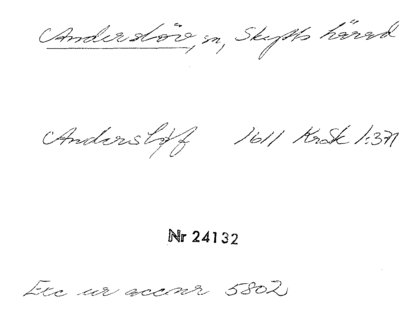 Anderslöv, sn, Skytts härad
Anderslöf 1611 KrSk 1:371
Nr 24132
Exc ur accnr 5802